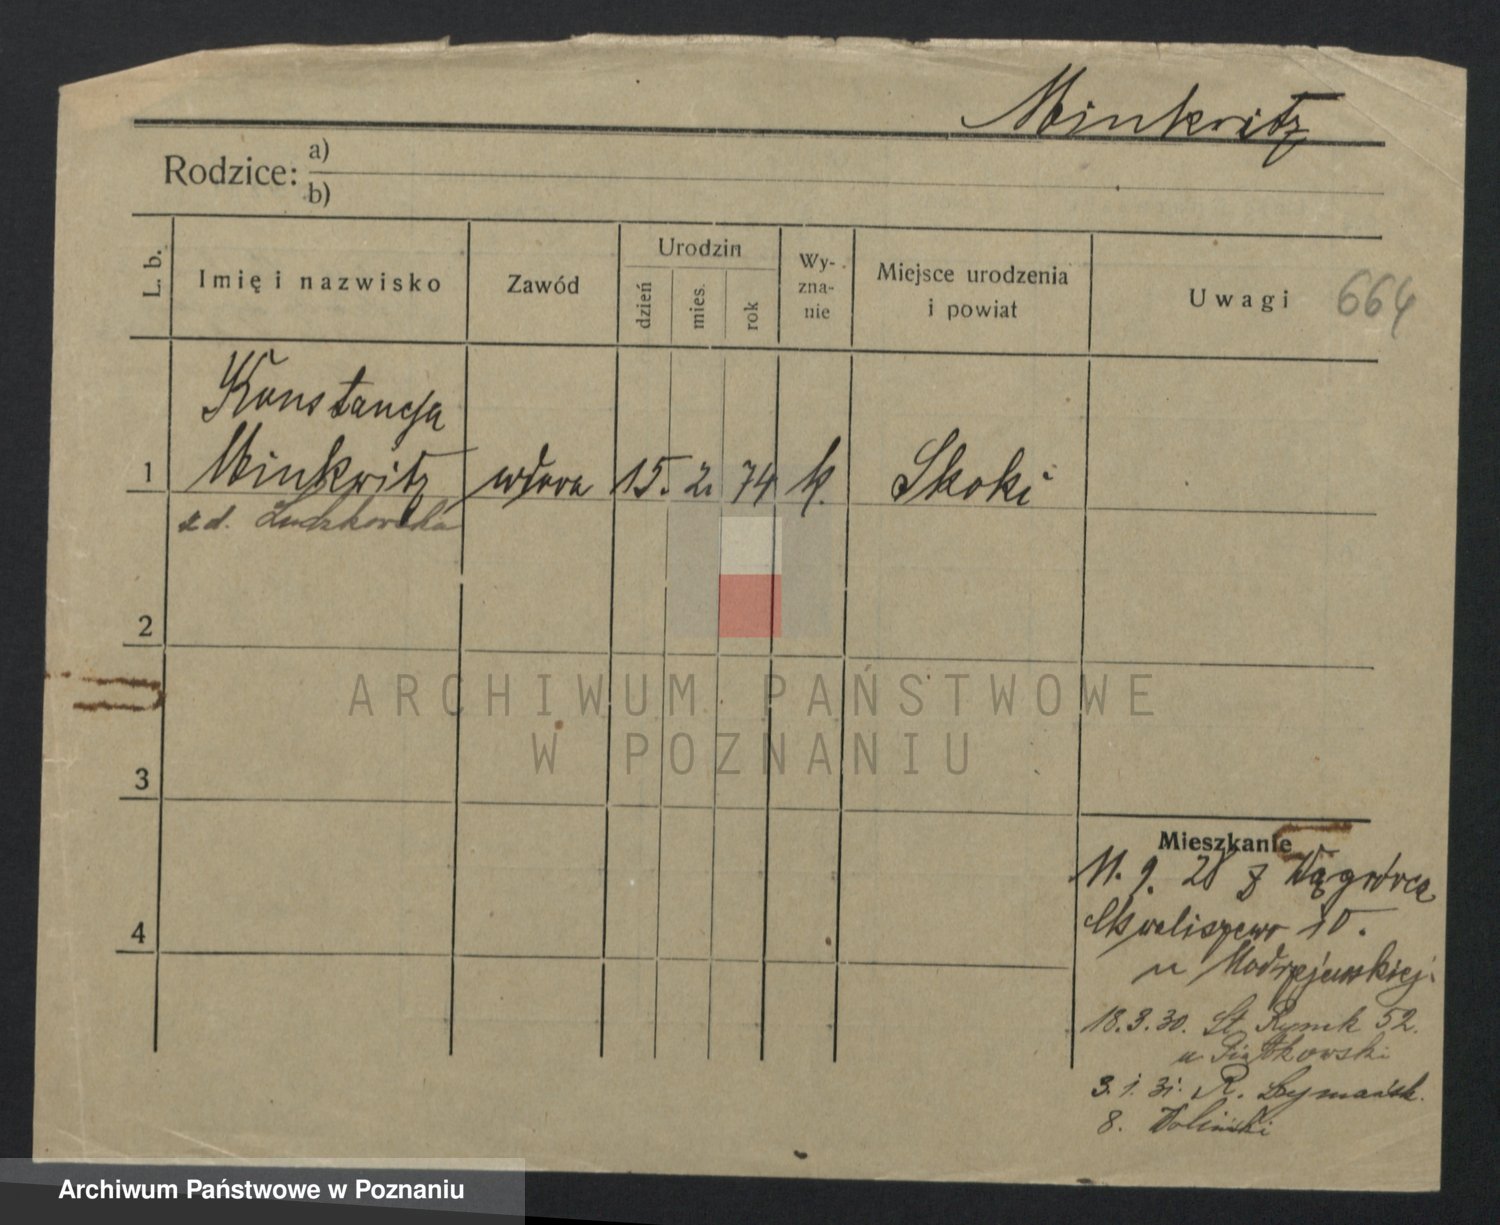 Minkwitz
Rodzice: a)
b)
L. b.
Imię i nazwisko
Zawód
Urodzin
dzień
mies.
rok
Wy-
zna-
nie
Miejsce urodzenia
i powiat
Uwagi
664
Konstancja
1 Minkwitz wdowa 15. 2. 74 k. Skoki
z d. Ludzkowska
2
ARCHIWUM PAŃSTWOWE
W POZNANIU
3
4
Mieszkanie
11. 9. 28 z Wągrówca
Chwaliszewo 10.
u Modrzejewskiej.
18. 3. 30. St. Rynek 52.
u Piątkowski
3. 1. 31. R. Szymańsk.
8. Woliński
Archiwum Państwowe w Poznaniu